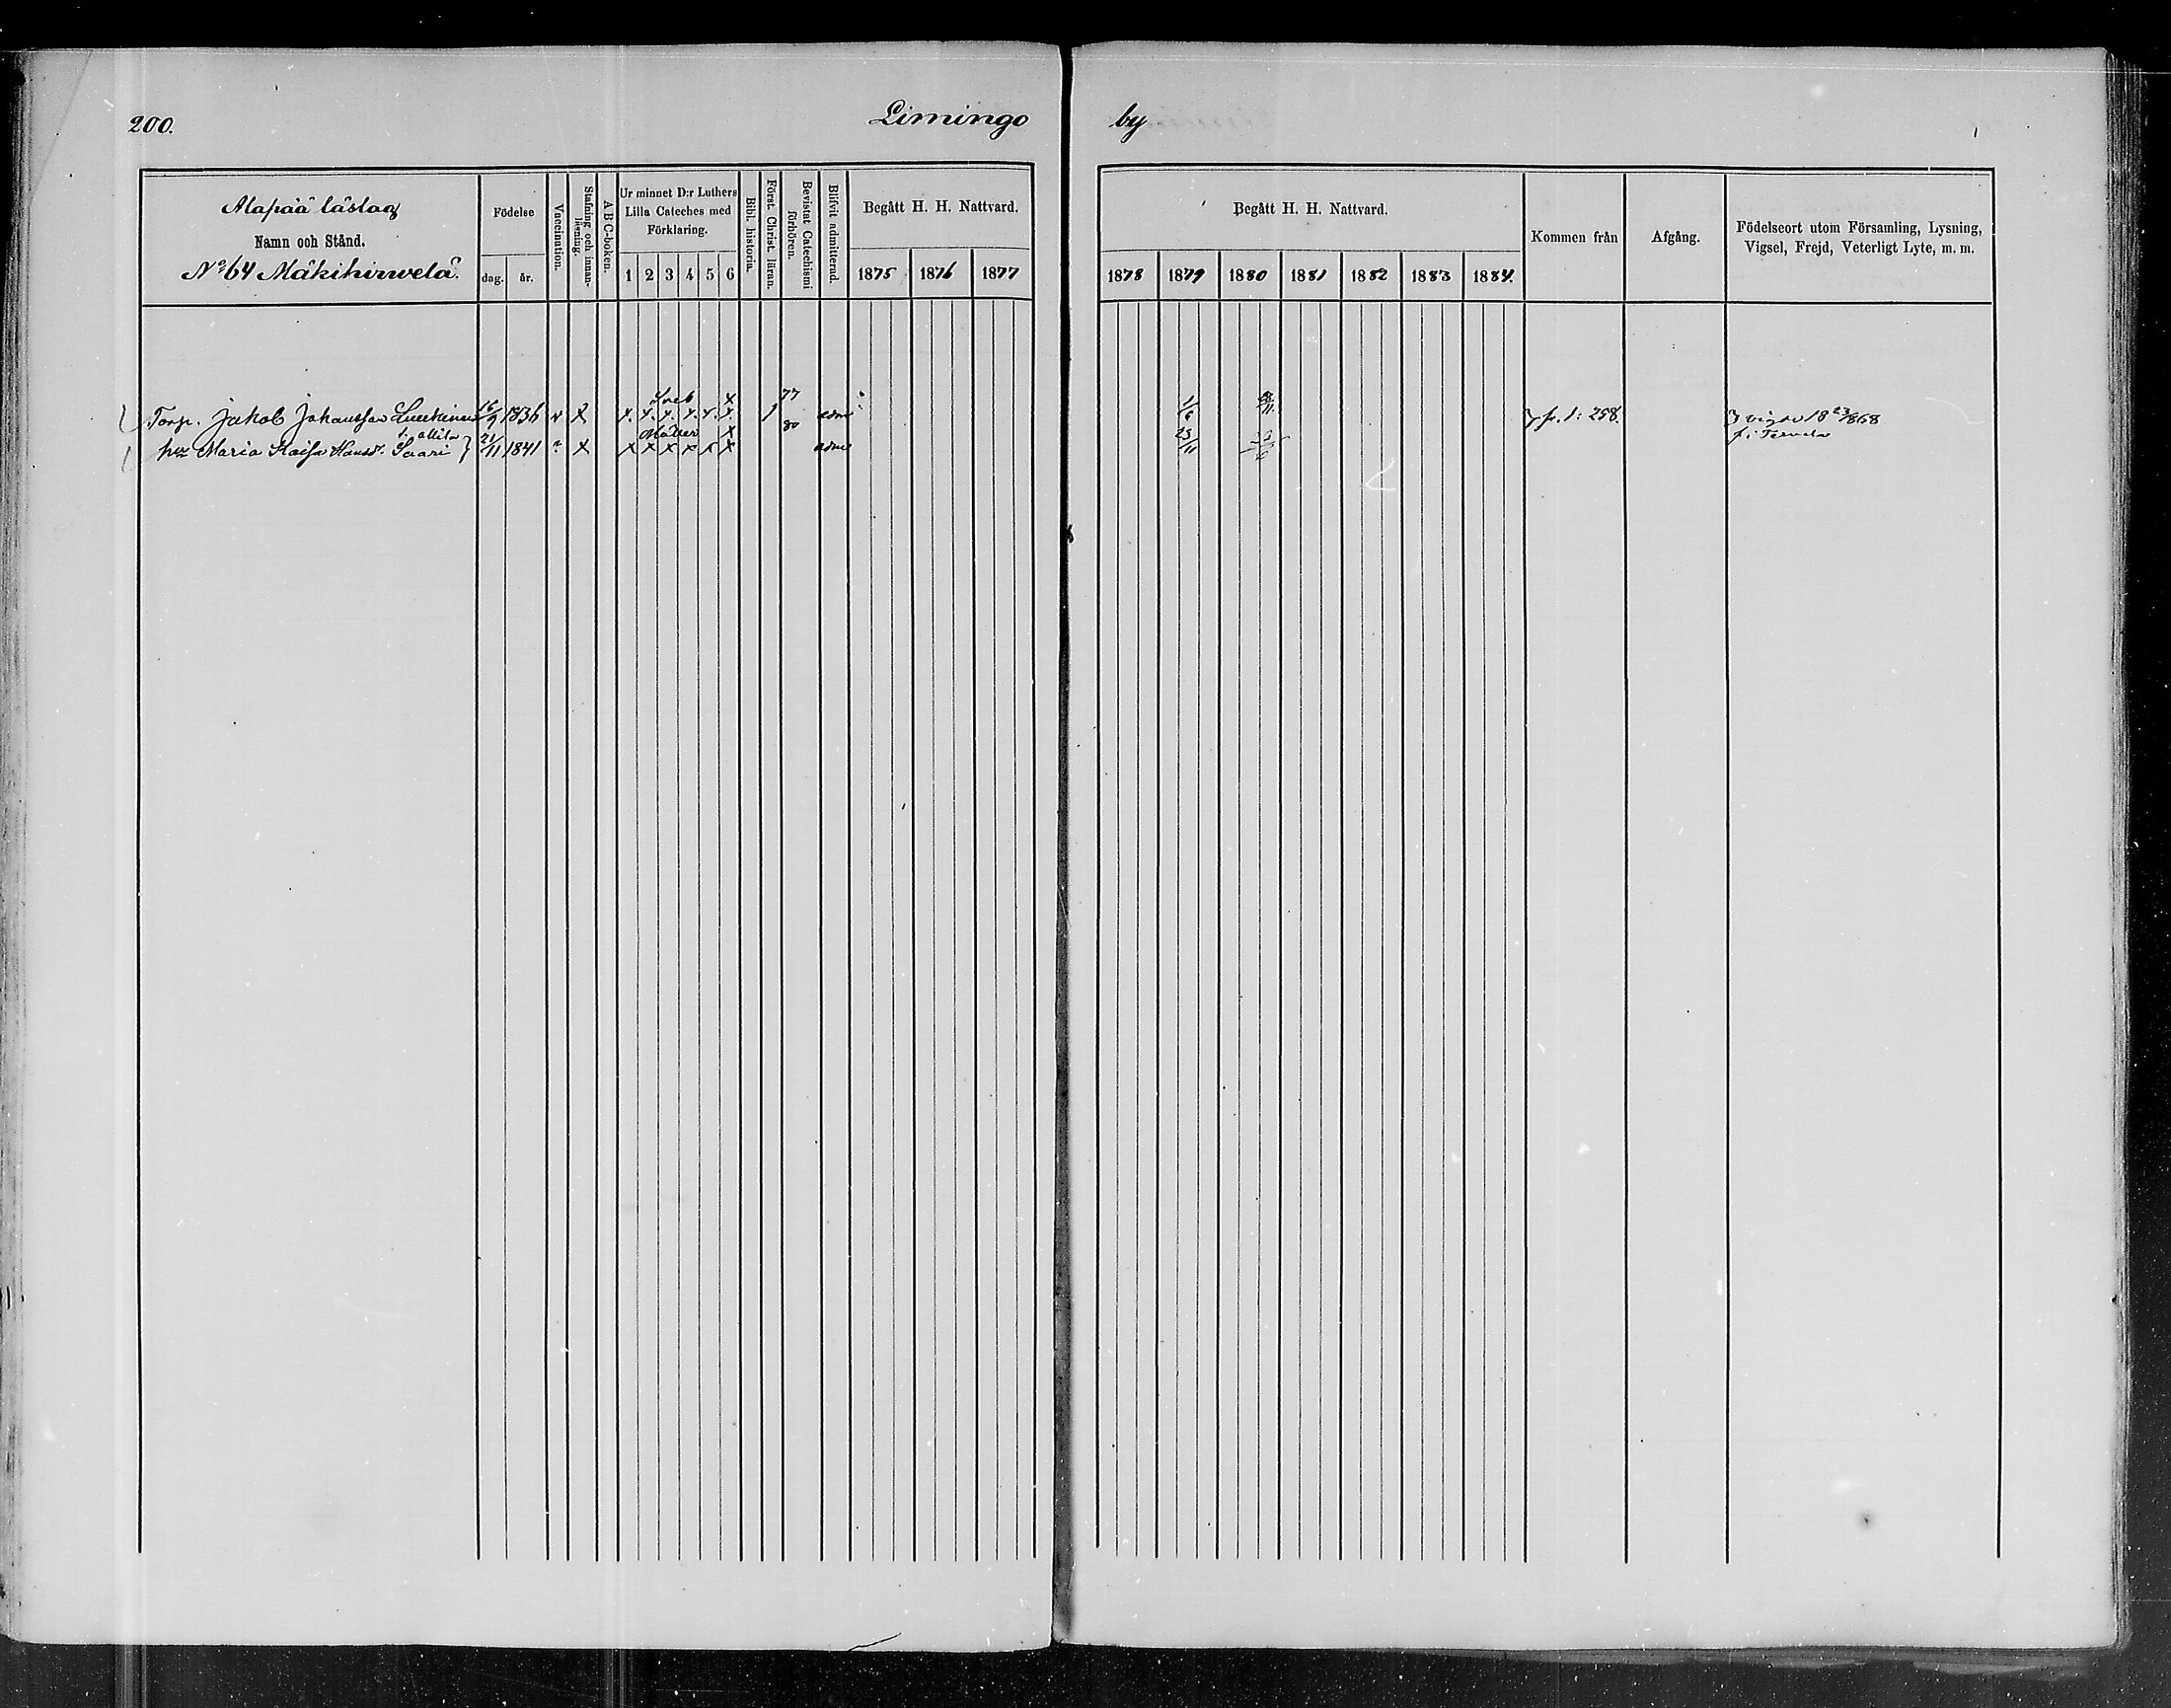 200.
Limingo by
Alapää läslag
Namn och Stånd.
No 64 Mäkihirwelä.
Födelse
dag. år.
Vaccination.
Stafning och innan-
läsning.
A B C-boken.
Ur minnet D:r Luthers
Lilla Cateches med
Förklaring.
1 2 3 4 5 6
Bibl. historia.
Först. Christ. läran.
Bevistat Catechismi
förhören.
Blifvit admitterad.
Begått H. H. Nattvard.
1875 1876 1877
Begått H. H. Nattvard.
1878 1879 1880 1881 1882 1883 1884.
Kommen från
Afgång.
Födelseort utom Församling, Lysning,
Vigsel, Frejd, Veterligt Lyte, m. m.
x 77
Torp. Jakob Johansson 16/9 1836 v x x. x. x. x. x. x. 1 adm 1/6 p. 1: 258. vigde 18 23/2 68
80
x 23 f. i Tervola
Maria Kaisa Hansd. Saari 21/11 1841 x x x x x x x adm 11